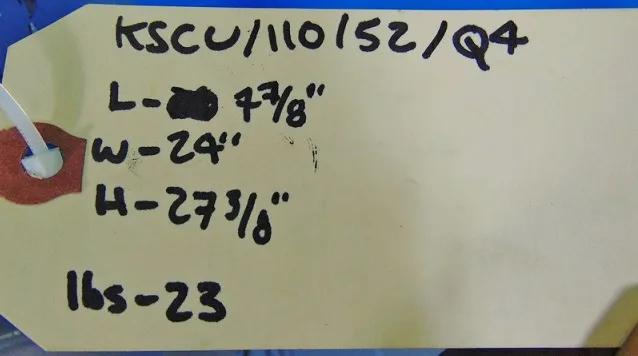 KSCU/110/52/Q4
L- 4 7/8"
W-24"
H-27 3/8"
lbs-23